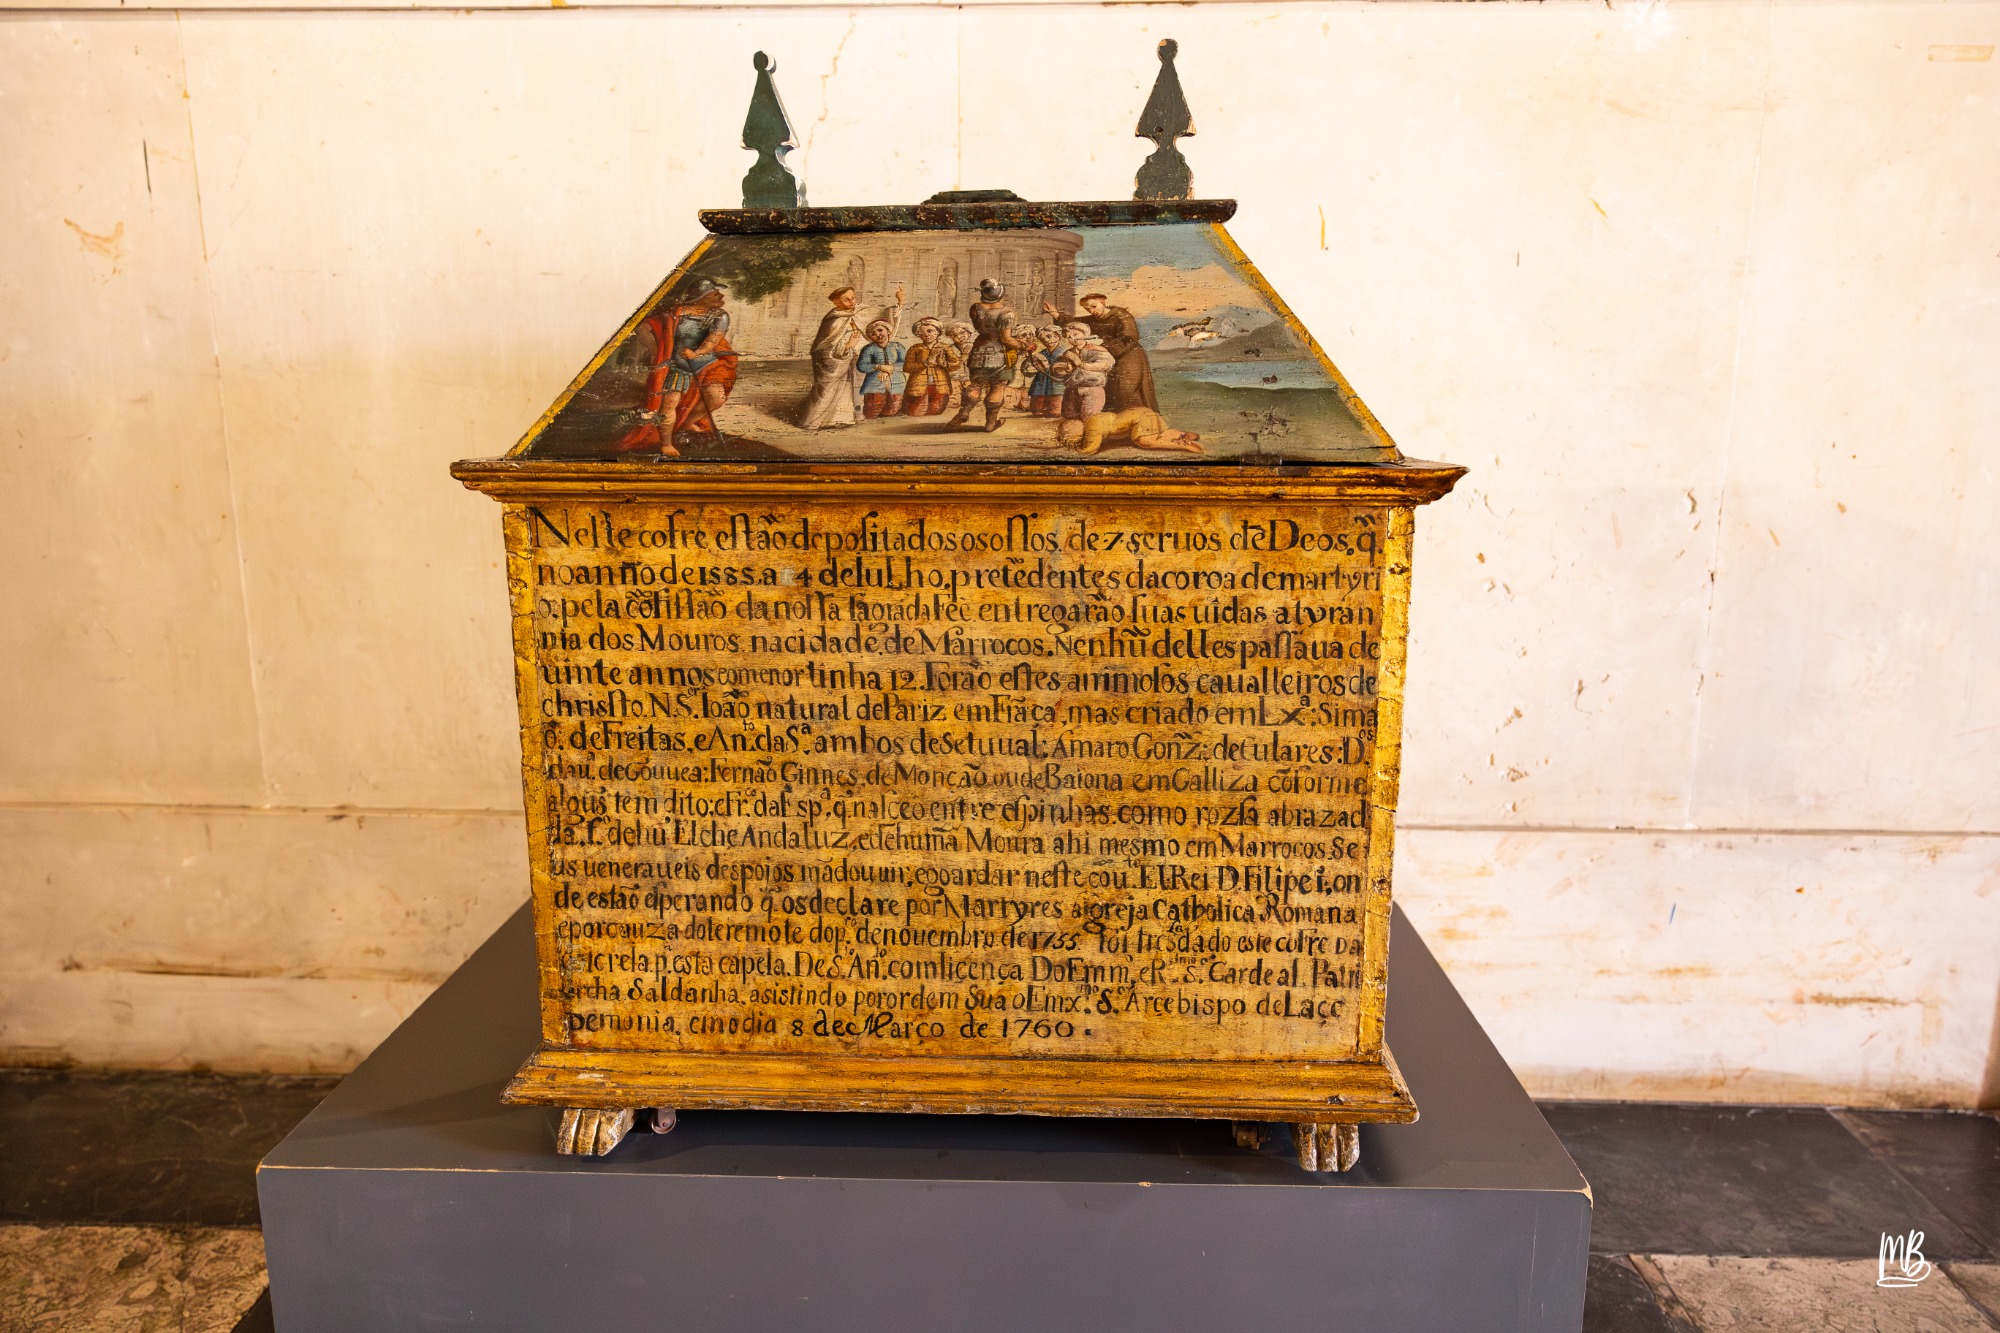 Neste cofre estão depositados os ossos. de 7 seruos de Deos. q̃.
no anño de 1585. a 4 de Iulho. pretẽdentes da coroa de martyri
o. pela cõfissão da nossa sagrada Feè. entregarão suas uidas a tyran
nia dos Mouros. na cidade de Marrocos. Nenhũ delles passaua de
uinte annos e o menor tinha 12. Forão estes animosos caualleiros de
christo. N. S.or Ioão natural de Pariz em Frãça, mas criado em Lx.ª: Sima
õ. de Freitas. e An.to da S.ª ambos de Setuual: Amaro Gonz: de Culares: D.os
dau.º de Gouuea: Fernão Ginnes. de Monção. ou de Baiona em Galliza cõforme
algũs tem dito: e Fr.co da sp.ª q̃ nasceo entre espinhas. como roza abrazad
da. f.º de hũ Elche Andaluz, e de huma Moura ahi mesmo em Marrocos. Se
us ueneraueis despojos mãdou uir, e goardar neste cou.to El Rei D. Filipe 1, on
de estão esperando q̃ os declare por Martyres a igreja Catholica Romana
e por cauza do teremote do p.º de nouembro de 1755. foi tresladado este cofre da
sicrela p.ª esta capela. De S.to An.o com licença Do Emm. e R.mo S.or Cardeal. Patri
archa Saldanha. asistindo por ordem Sua o Emx.mo S.or Arcebispo de Laçe
demonia. em o dia 8 de Março de 1760.
MB